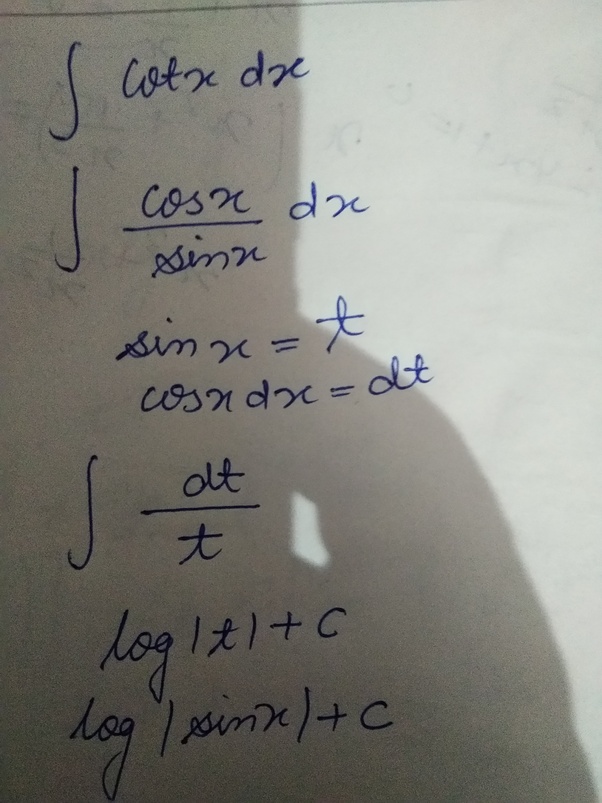 ∫ cotx dx
∫ cosx/sinx dx
sinx = t
cosx dx = dt
∫ dt/t
log|t| + c
log|sinx| + c